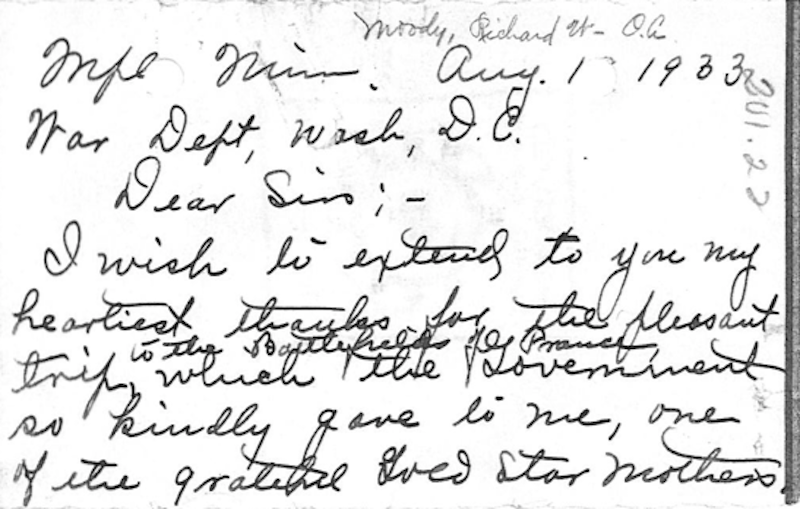 Moody, Richard W - O.A
Mpl Minn. Aug. 1 1933
201.22
War Dept, Wash, D.C.
Dear Sirs; -
I wish to extend to you my
heartiest thanks for the pleasant
to the Battlefields of France,
trip, which the Government
so kindly gave to me, one
of the grateful Gold Star Mothers.